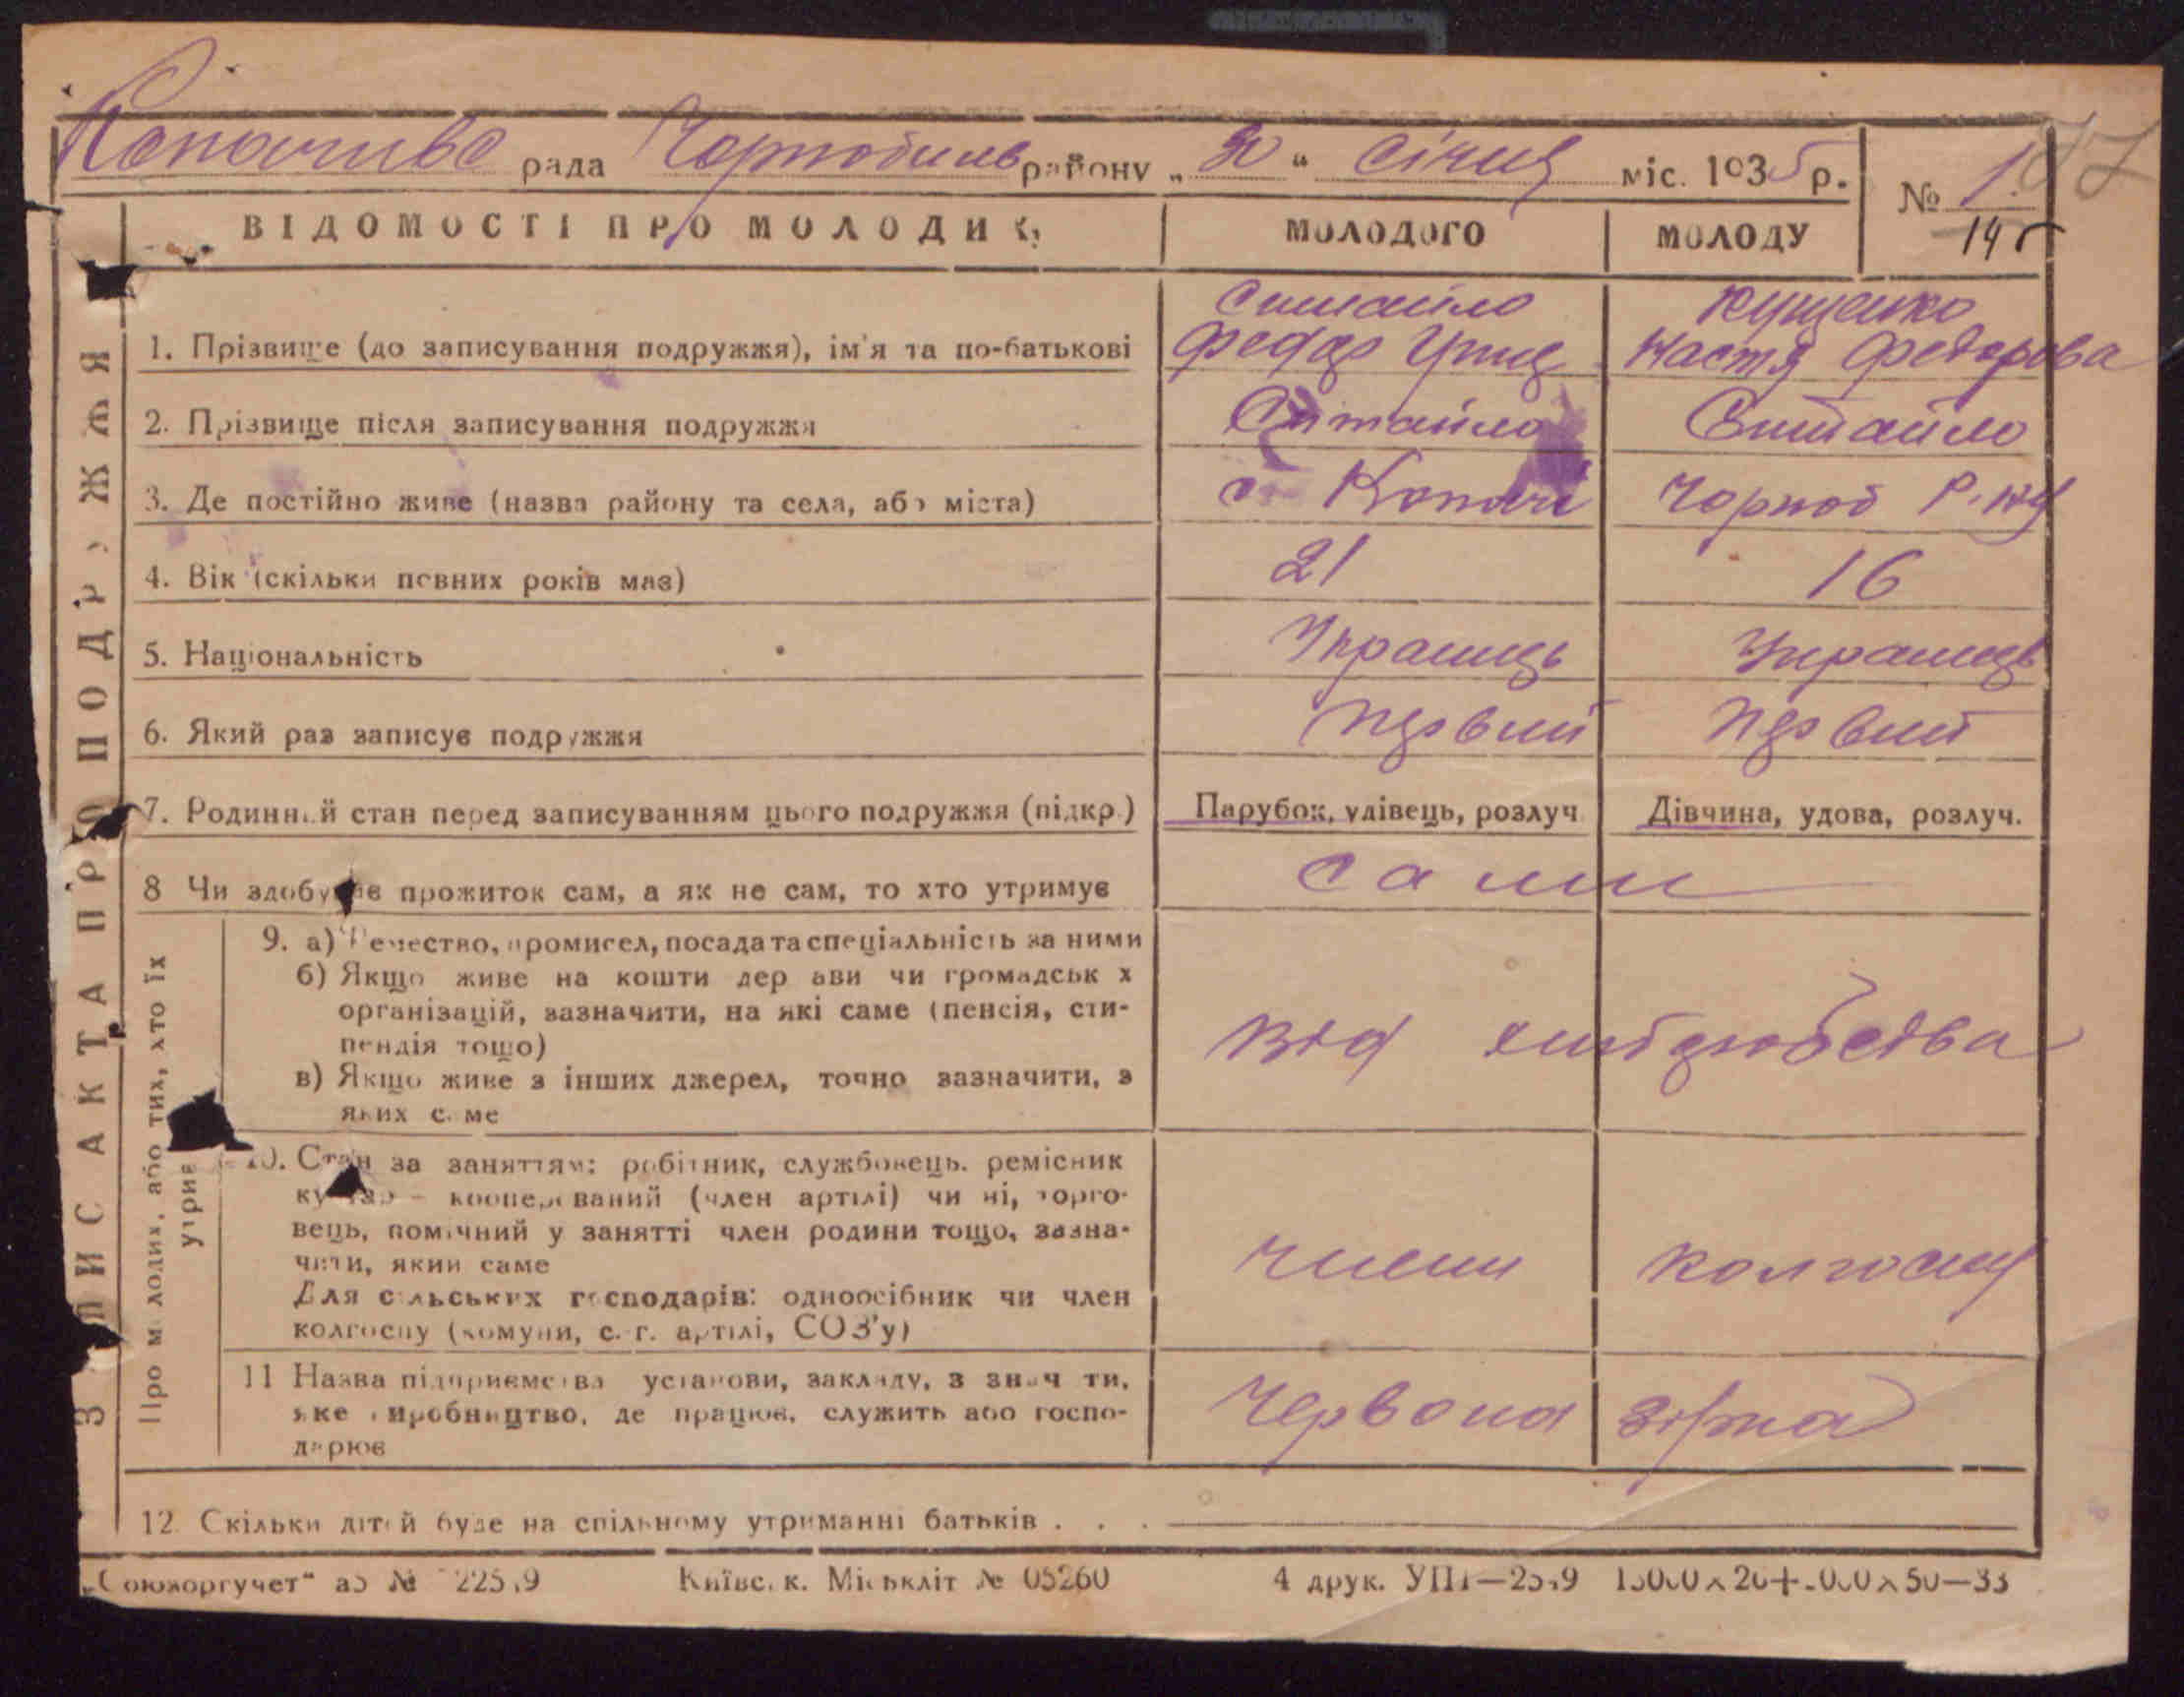 Копачивс рада Чорнобильс району „30“ Січня міс. 1935 р. № 1.
147
ВІДОМОСТІ ПРО МОЛОДИХ МОЛОДОГО МОЛОДУ
Ситайло Кущенко
1. Прізвище (до записування подружжя), ім'я та по-батькові Федор Настя Федорова
2. Прізвище після записування подружжя Ситайло Ситайло
3. Де постійно живе (назва району та села, або міста) с. Копачі Чорноб Р-ну
4. Вік (скільки повних років має) 21 16
5. Національність Украинць Украинць
6. Який раз записує подружжя первий первий
7. Родинний стан перед записуванням цього подружжя (підкр.) Парубок, удівець, розлуч. Дівчина, удова, розлуч.
8 Чи здобуває прожиток сам, а як не сам, то хто утримує сами
9. а) Ремество, промисел, посада та спеціальність за ними
б) Якщо живе на кошти держави чи громадських
організацій, зазначити, на які саме (пенсія, сти-
пендія тощо) від хліборобства
в) Якщо живе з інших джерел, точно зазначити, з
яких саме
10. Стан за заняттям: робітник, службовець, ремісник
кустар — кооперований (член артілі) чи ні, торго-
вець, помічний у занятті член родини тощо, зазна-
чити, який саме члени колгоспу
Для сільських господарів: одноосібник чи член
колгоспу (комуни, с.-г. артілі, СОЗ'у)
11 Назва підприємства установи, закладу, зазначити,
яке виробництво, де працює, служить або госпо- Червона зірка
дарює
12. Скільки дітей буде на спільному утриманні батьків . . .
ЗАПИС АКТА ПРО ПОДРУЖЖЯ
Про молодих, або тих, хто їх
утримує
„Союзоргучет“ Київс. к. Міськліт № 05260 4 друк.